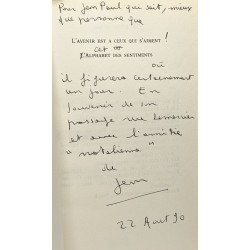 Pour Jean Paul qui sait, mieux
que personne que
L'AVENIR EST A CEUX QUI S'AIMENT !
cet
L'ALPHABET DES SENTIMENTS
où
il figurera certainement
un jour. En
souvenir de son
passage rue Lemercier
et avec l'amitié
de
Jean
22 Août 90